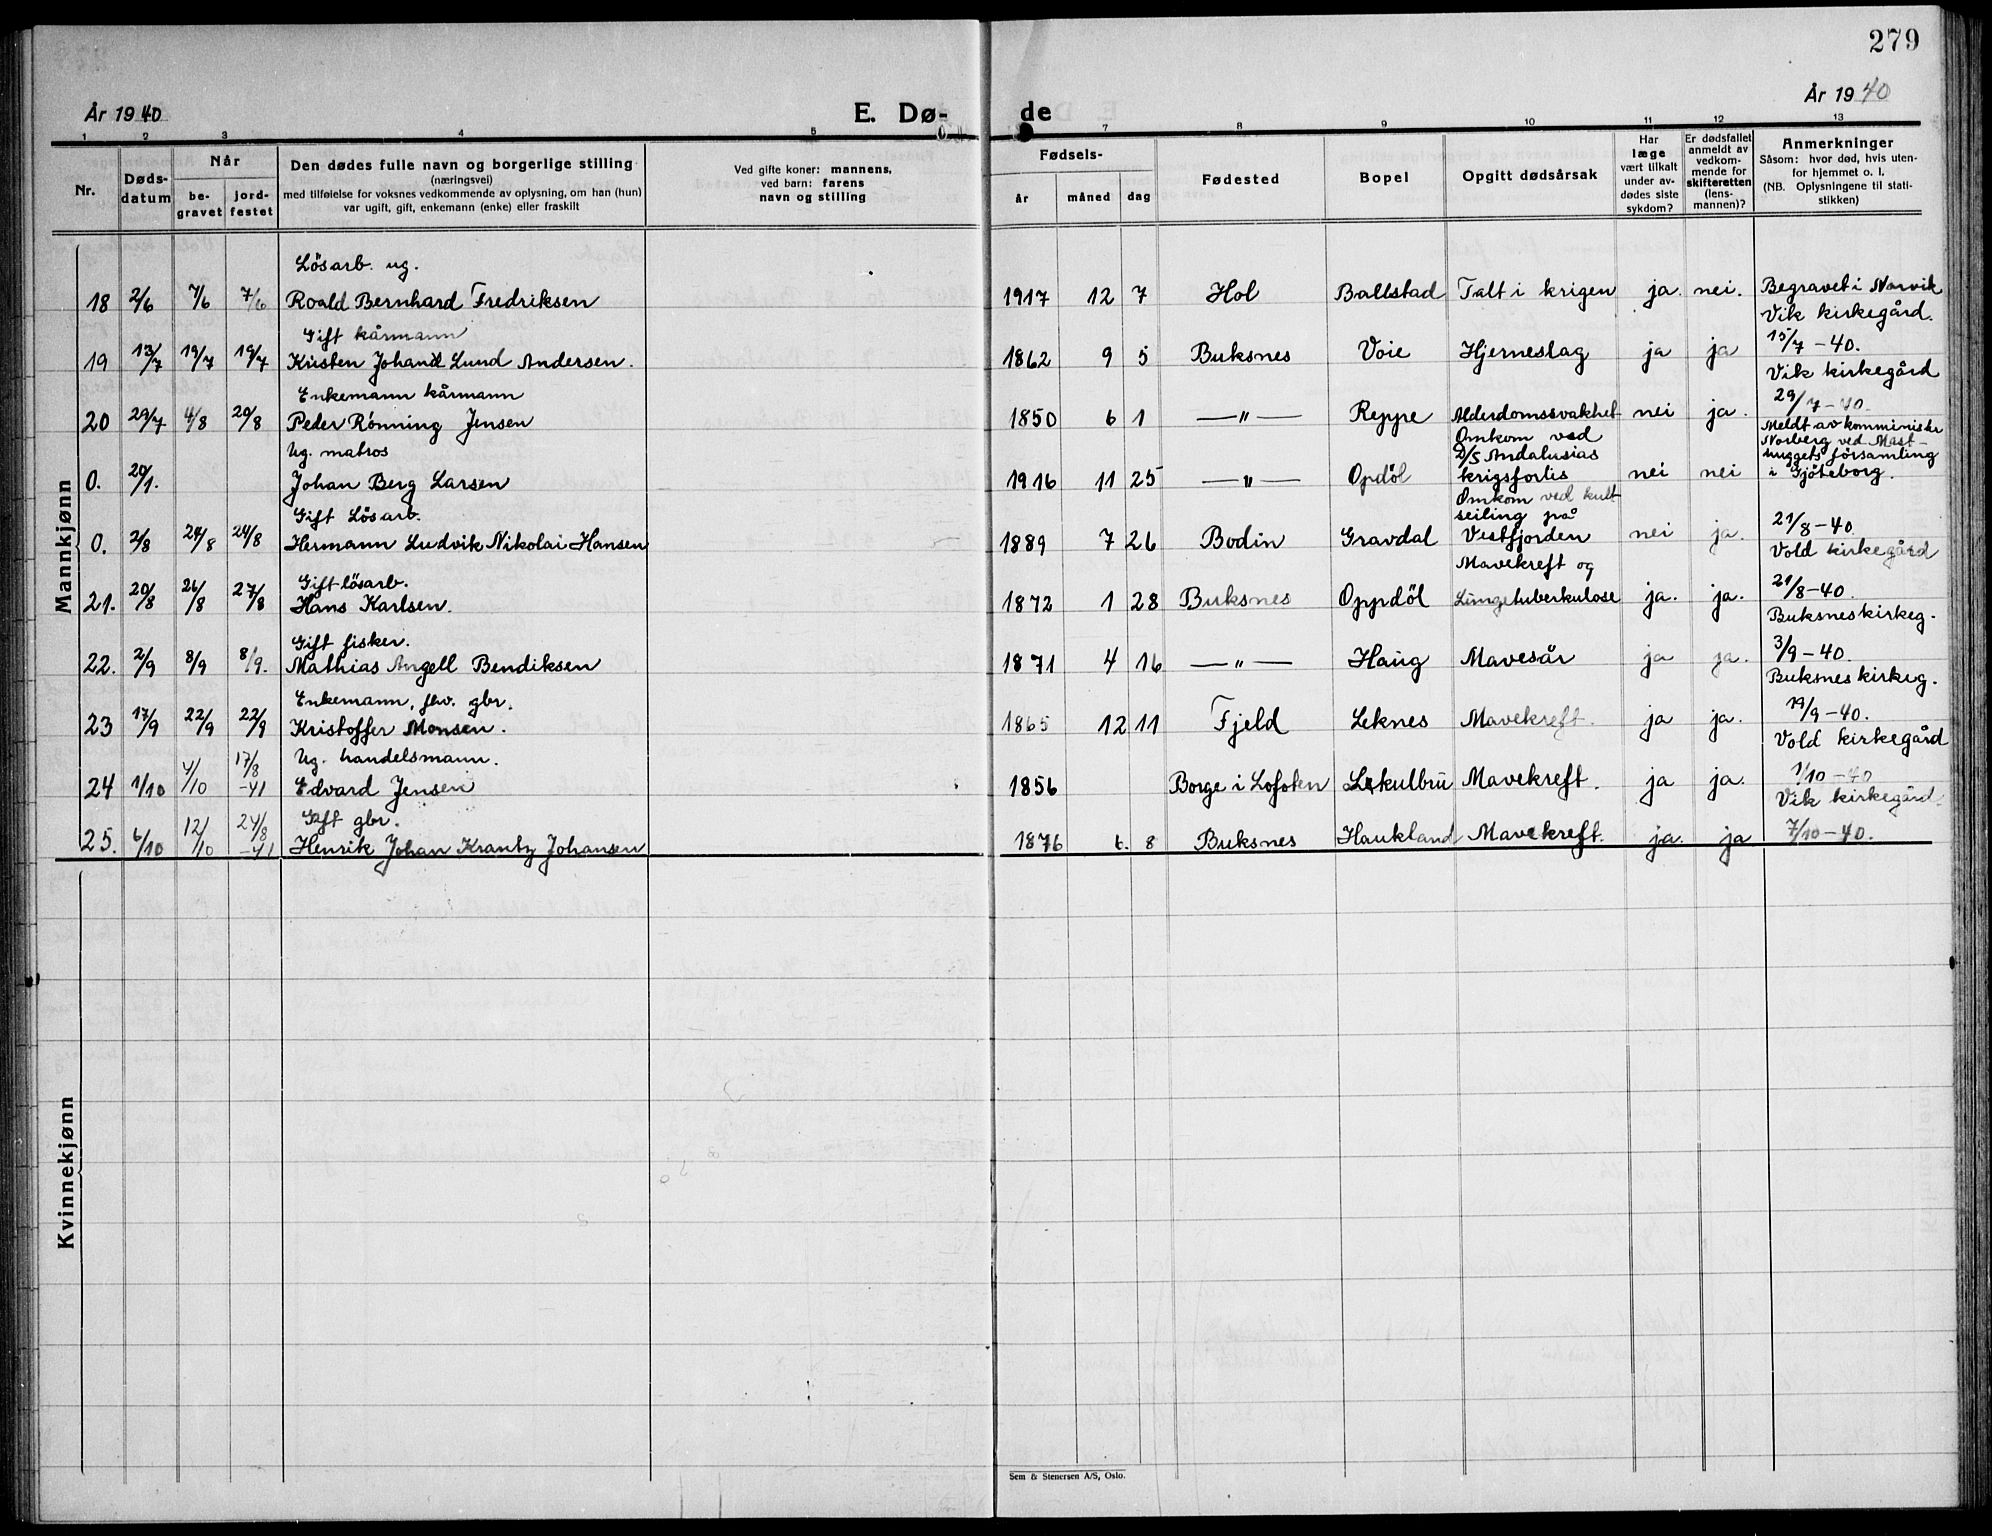 279
År 1940
E. Dø-
de
År 1940
1 2 3 4 5 7 8 9 10 11 12 13
Nr.
Døds-
datum
Når
be-
gravet
jord-
festet
Den dødes fulle navn og borgerlige stilling
(næringsvei)
med tilføielse for voksnes vedkommende av oplysning, om han (hun)
var ugift, gift, enkemann (enke) eller fraskilt
Ved gifte koner: mannens,
ved barn: farens
navn og stilling
Fødsels-
år måned dag
Fødested
Bopel
Opgitt dødsårsak
Har
læge
vært tilkalt
under av-
dødes siste
sykdom?
Er dødsfallet
anmeldt av
vedkom-
mende for
skifteretten
(lens-
mannen)?
Anmerkninger
Såsom: hvor død, hvis uten-
for hjemmet o. l.
(NB. Oplysningene til stati-
stikken)
Mannkjønn
Lösarb. ug.
18 2/6 7/6 7/6 Roald Bernhard Fredriksen 1917 12 7 Hol Ballstad Falt i krigen ja. nei. Begravet i Narvik
Vik kirkegård.
Gift kårmann
19 13/7 19/7 19/7 Kristen Johan Lund Andersen. 1862 9 5 Buksnes Voie Hjerneslag ja ja 15/7 -40.
Vik kirkegård
Enkemann kårmann
20 29/7 4/8 20/8 Peder Rønning Jensen 1850 6 1 —"— Reppe Alderdomssvakhet nei ja. 29/7 -40.
Ug. matros
0. 20/1. Johan Berg Larsen 1916 11 25 —"— Opdöl Omkom ved
D/S Andalusias
krigsforlis nei nei Meldt av komminister
Norberg ved Mast-
huggets församling
i Gjöteborg.
Gift Lösarb.
0. 2/8 24/8 24/8 Hermann Ludvik Nikolai Hansen 1889 7 26 Bodin Gravdal Omkom ved kult
seiling på
Vestfjorden nei ja. 21/8-40.
Vold kirkegård
Gift lösarb.
21. 20/8 26/8 27/8 Hans Karlsen. 1872 1 28 Buksnes Oppdöl Mavekreft og
Lungetuberkulose ja. ja. 21/8-40.
Buksnes kirkeg.
Gift fisker.
22. 2/9 8/9 8/9. Mathias Angell Bendiksen 1871 4 16 —"— Haug Mavesår ja ja. 3/9-40.
Buksnes kirkeg.
Enkemann, fhv. gbr.
23 17/9 22/9 22/9 Kristoffer Monsen. 1865 12 11 Fjeld Leknes Mavekreft. ja ja. 19/9-40.
Vold kirkegård
Ug. handelsmann.
24 1/10 4/10 17/8 -41 Edvard Jensen 1856 Borge i Lofoten Mavekreft. ja ja. 1/10-40
Vik kirkegård.
Gift gbr.
25. 6/10 12/10 24/8 -41 Henrik Johan Krantz Johansen 1876 6. 8 Buksnes Haukland Mavekreft. ja. ja 7/10-40.
Kvinnekjønn
Sem & Stenersen A/S, Oslo.